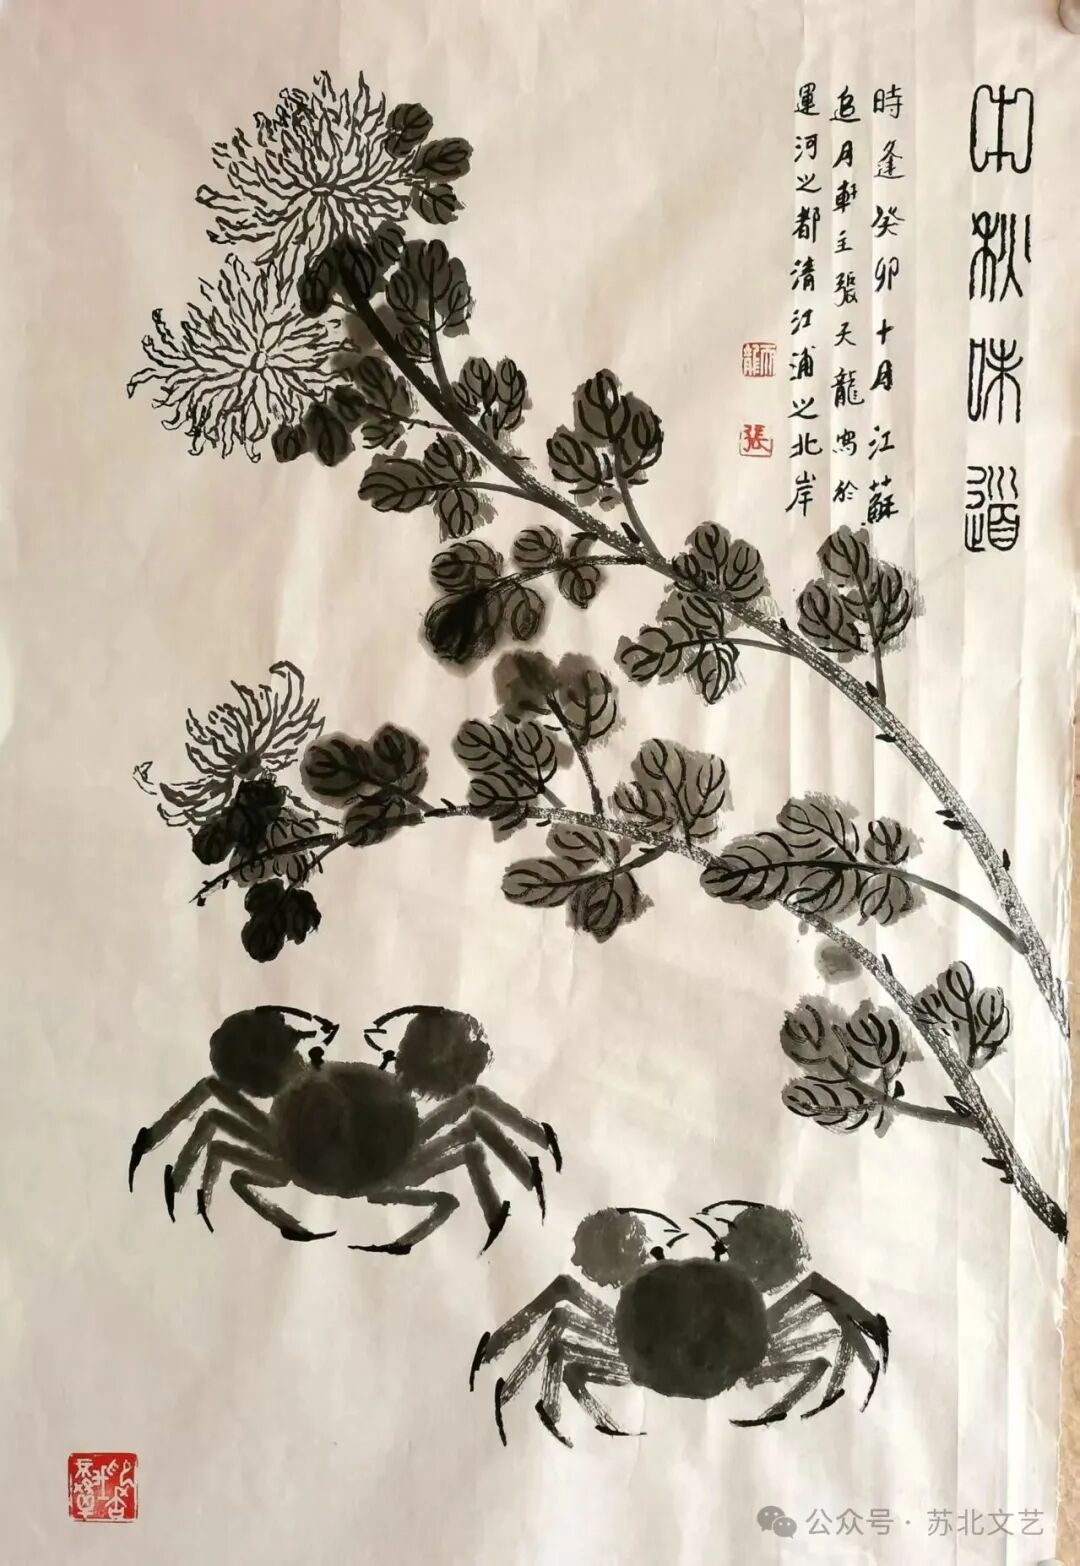 中秋味道
時逢癸卯十月江蘇
追月軒主張天龍寫於
運河之都清江浦之北岸
天龍
張
公众号 · 苏北文艺